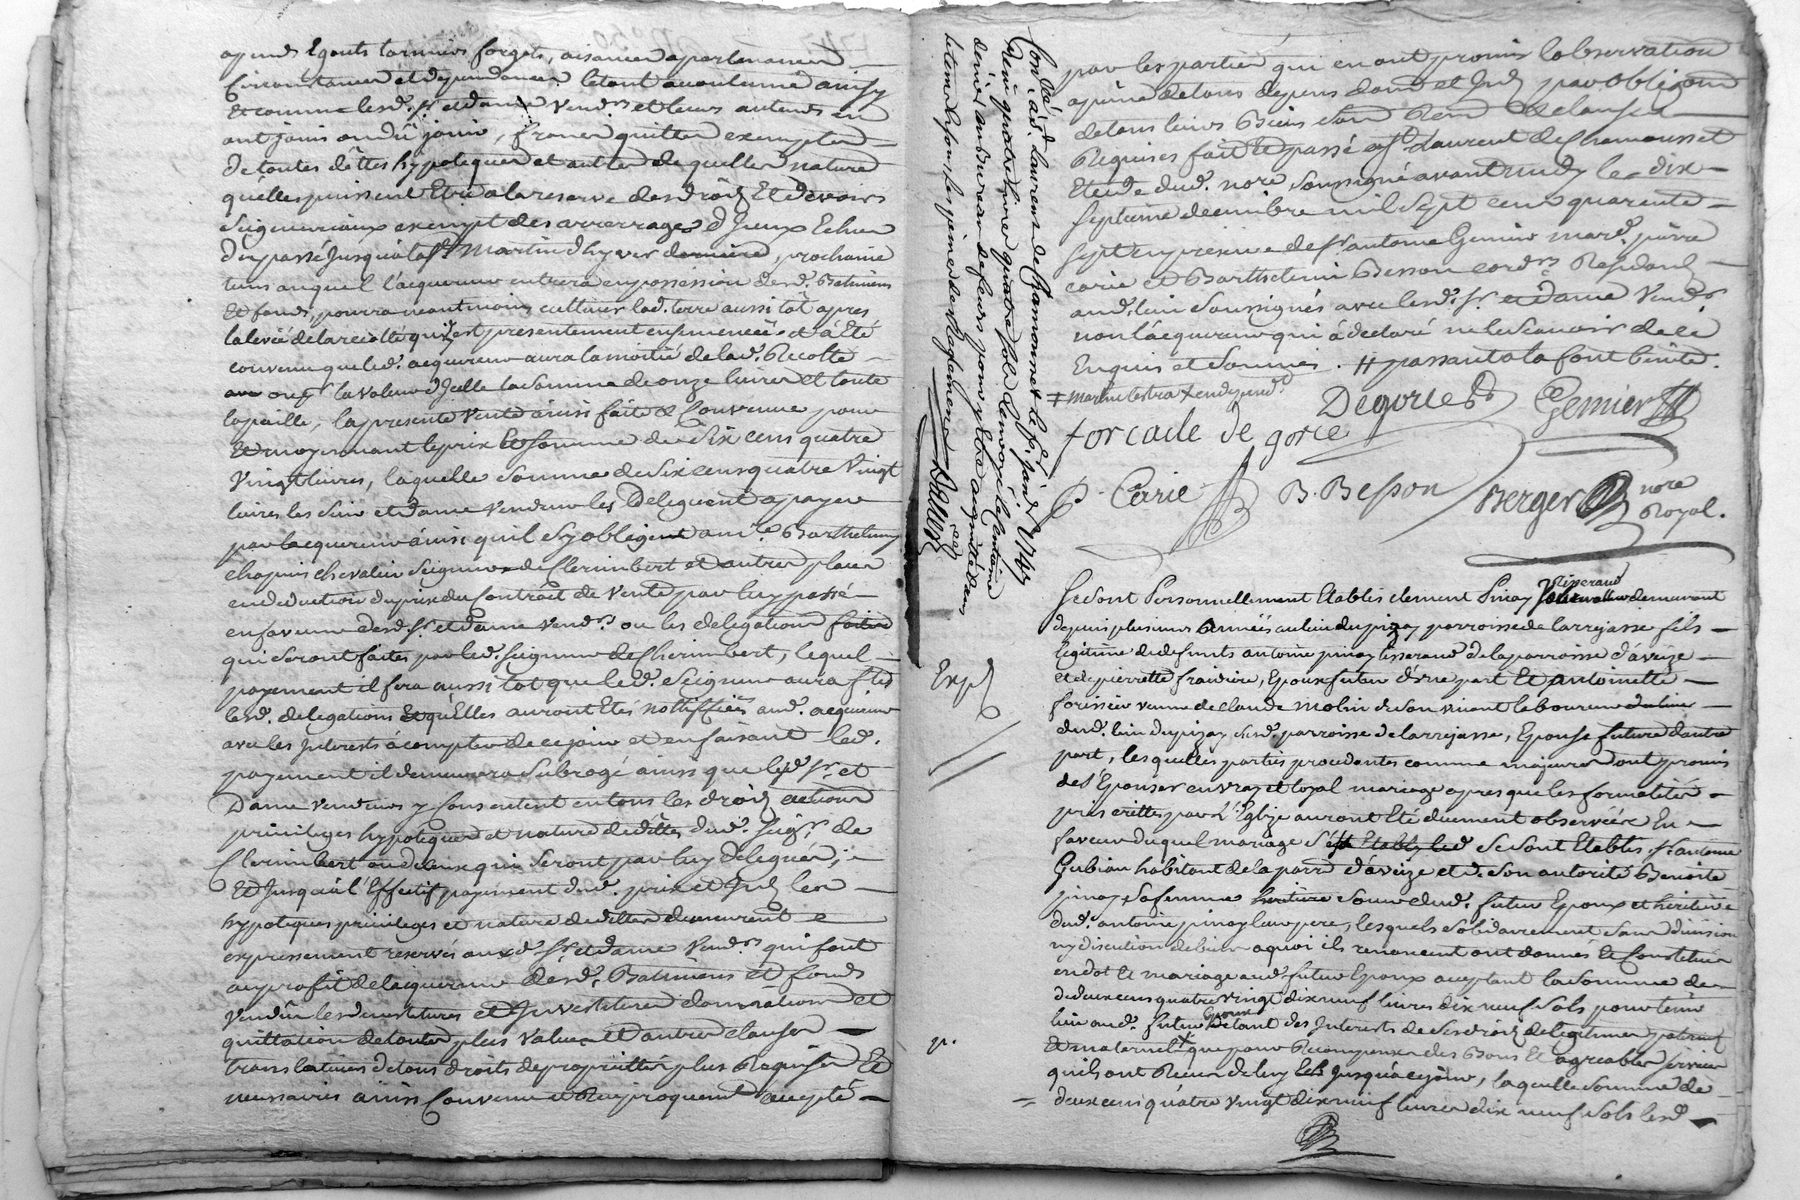 ayands Egouts larmiers forgets, aisances apartenances
Circonstances et dependances letout acoutumé ainsy
et comme lesd. sr et dame vendrs et leurs auteurs en
ont joui ou dû jouir, francs quittes exempts
de toutes dêttes hypoteques et autres de quelles nature
quélles puissent Etre a la reserve des drôits Et devoirs
Seigneuriaux exempt des arrerrages d Jceux Echus
du passé jusqu'à la st Martin d'hyver derniere, prochaine
tems auquel l'acquereur entrera en possession desd. Batimens
et fonds, pourra neantmoins cultiver lad. terre aussi tôt apres
la levée de la recolte qui est presentement ensemencée et à Eté
convenu que led. acquereur aura la moitié de lad. Recolte
ou la valeur d Jcelle la somme de onze livres et toute
la paille, la presente vente ainsi faite & Convenue pour
Et moyennant le prix Et somme de Six cens quatre
Vingt livres, laquelle somme de six cens quatre vingt
livres les Sieur et dame vendeurs les Deleguent a payer
par lacquereur ainsi qu'il s'y oblige a mre Barthelemy
chapuis chevalier Seigneur de Clerimbert et autres places
en deduction du prix du Contrat de vente par luy passé
en faveur desd. sr et dame vendrs ou les delegations
qui seront faites par led. seigneur de Clerimbert, lequel
payement il fera aussi tot que led. Seigneur aura fait
lesd. delegations Et qu'Elles auront Etés nottiffiées aud. acquereur
avec les Jnterests à compter de ce jour et en faisant led.
payement il demeurera Subrogé ainsi que lesd. sr et
Dame vendeurs y Consentent en tous les droits actions
privileges hypoteques et nature de dêttes dud. seigr. de
Clerimbert ou de ceux qui seront par luy delegués,
Et jusqu'à l'Effectif payement dud. prix et Jnts les
hypoteques privileges et nature de dettes demeurent
expressement reservés auxd. sr et dame vendrs qui font
au profit de lacquereur desd. Batimens et fonds
vendus les devestitures et Jnvestitures donnations et
quittation de toutes plus values et autres clauses
translatives de tous droits de proprietté plus Requises Et
necessaires ainsi Convenu et Reciproquement accepté
Con.lé à st Laurent de Chamousset le Pr. janvr 1748
Reçu quatre livre quatre sols Renvoyé le Centieme
denier au Bureau de pour y Etre acquitté dans
le tems & sous les peines des Reglements
par les parties qui en ont promis l'observation
a peine de tous depens dom. et Jnts par obligaon
de tous leurs Biens Clauses
Requises fait & passé a st Laurent de Chamousset
Etude dud. nore soussigné avant midy le dix
septieme decembre mil sept cens quarante
sept en presence de sr antoine Gemier mard. pierre
carie et Barthelemi Besson cordrs Residants
aud. lieu soussignés avec lesd. sr et dame vendrs
non lacquereur qui à declaré ne le scavoir de ce
Enquis et sommés. # passant a la font benite.
Degorce
Gemier
forcade de gorce
P. Carie
B. Besson
Berger nore
Royal.
Se sont Personnellement Etablis clement Pinay tisserand demeurant
depuis plusieurs années au lieu du pizay parroisse de larrajasse fils
legitime de defunts antoine pinay tisserand de la parroisse d'aveize
et de pierrette fraissse, Epoux futur d'une part Et antoinette
forissier veuve de claude molin de son vivant laboureur
dud. lieu du pizay susd. parroisse de larrajasse, Epouse future d'autre
part, lesquelles parties procedantes comme majeures ont promis
de s'Epouser en vray et loyal mariage apres que les formalités
prescrittes par L'Eglize auront Eté duement observées En
faveur duquel mariage Se sont Etablis sr antoine
Gubian habitant de la parr. d'aveize et d. son autorité Benoite
pinay sa femme soeur dud. futur Epoux et heritiere
dud. antoine pinay leur pere, lesquels solidairement sans division
ny discution de biens a quoi ils renoncent ont donnés Et Constitué
en dot Et mariage aud. futur Epoux acceptant la somme de
de deux cens quatre vingt dix neuf livres dix neuf sols pour tenir
lieu aud. futur Epoux tant des Jnterests de ses droits de legitimes paternels
Et maternels que pour Recompense des Bons Et agreables services
qu'ils ont Recus de luy jusqu'a ce jour, laquelle somme de
deux cens quatre vingt dix neuf livres dix neuf sols lesd.
Exp